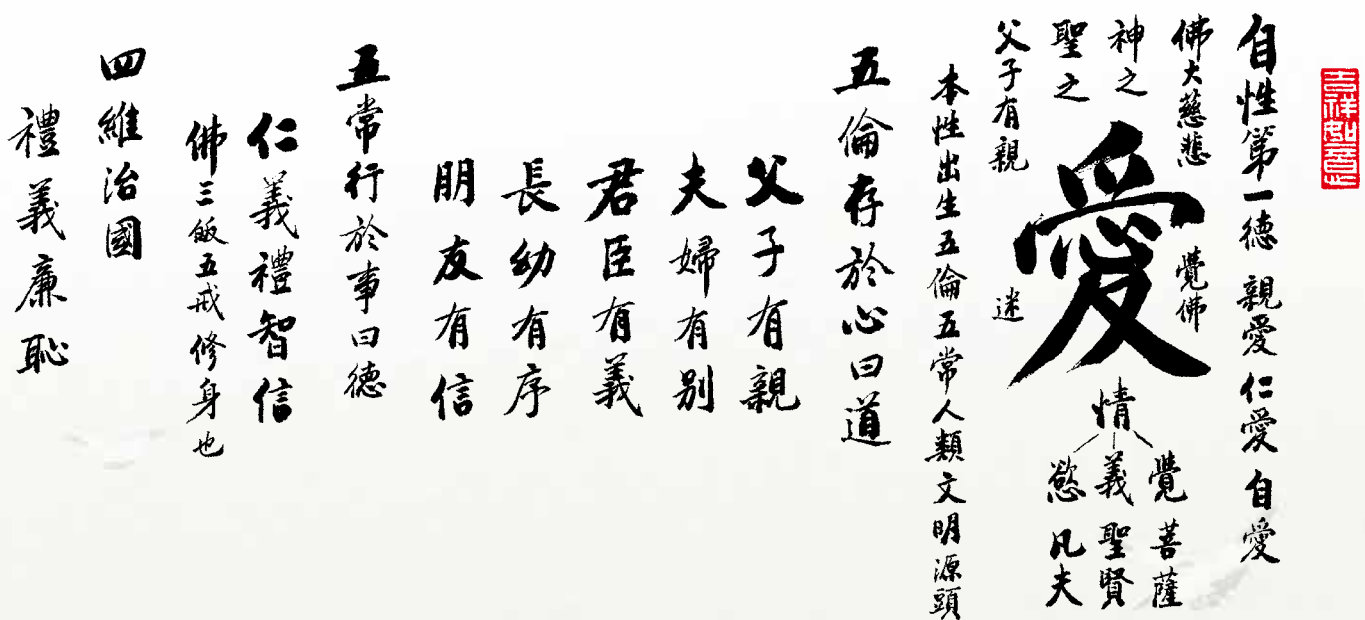 吉祥如意
自性第一德 親愛 仁愛 自愛
佛大慈悲
神之
聖之
父子有親
愛
覺佛
迷
情
覺 菩薩
義 聖賢
慾 凡夫
本性出生五倫五常人類文明源頭
五倫存於心曰道
父子有親
夫婦有別
君臣有義
長幼有序
朋友有信
五常行於事曰德
仁義禮智信
佛三皈五戒修身也
四維治國
禮義廉恥